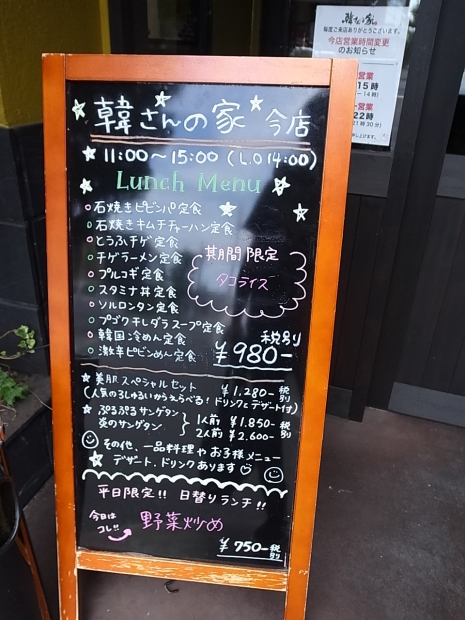 韓さんの家
毎度ご来店ありがとうございます。
今店営業時間変更
のお知らせ
営業
15時
14時)
営業
22時
21時30分)
韓さんの家 今店
11:00〜15:00 (L.O 14:00)
Lunch Menu
石焼きビビンバ定食
石焼きキムチチャーハン定食
とうふチゲ定食
チゲラーメン定食
プルコギ定食
スタミナ丼定食
ソルロンタン定食
プゴクチレダラスープ定食
韓国冷めん定食
激辛ビビンめん定食
期間限定
タコライス
税別
¥980-
美肌スペシャルセット ¥1,280-税別
(人気の3しゅるいからえらべる! ドリンクとデザート付)
ぷるぷるサンゲタン
炎のサンゲタン
1人前 ¥1,850-
2人前 ¥2,600-
税別
その他、一品料理やお子様メニュー
デザート、ドリンクあります♡
平日限定!! 日替りランチ!!
今日は
コレ!!
野菜炒め
¥750-税別